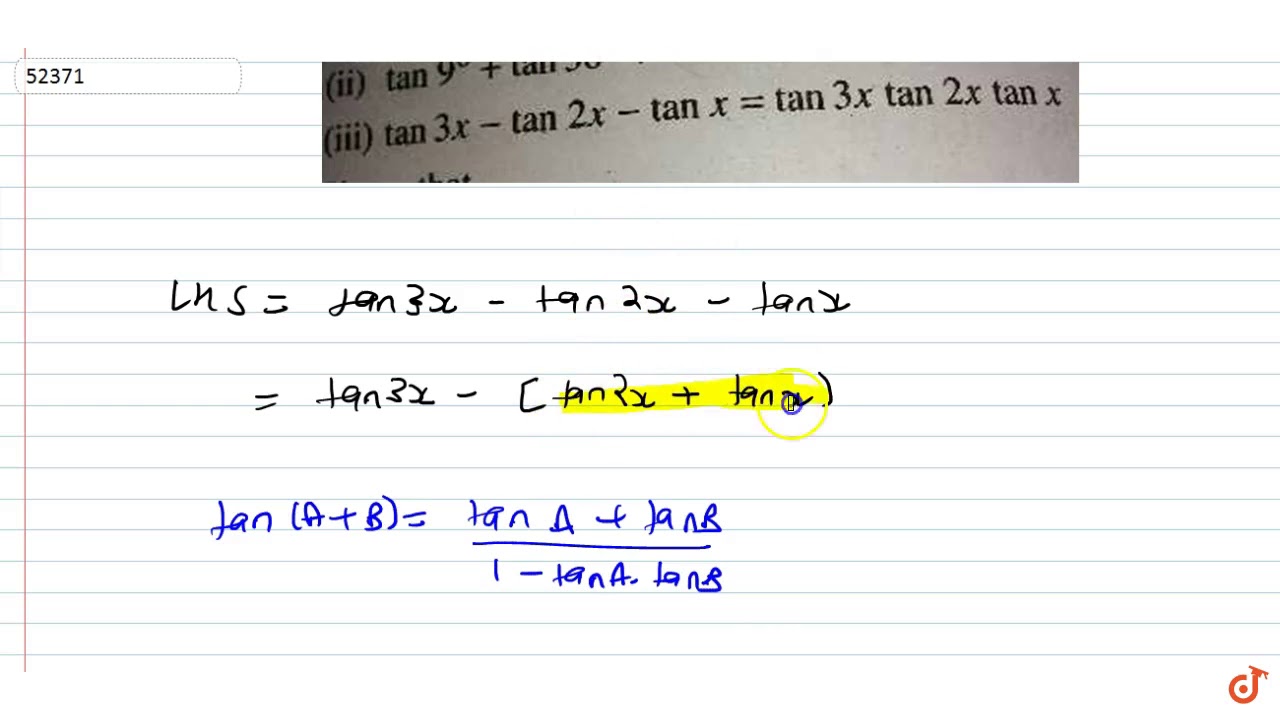 52371
(ii) tan 9° + tan
(iii) tan 3x − tan 2x − tan x = tan 3x tan 2x tan x
that
LHS = tan3x - tan2x - tanx
= tan3x - [tan2x + tanx)
tan (A+B) = tan A + tanB
1 - tanA. tanB